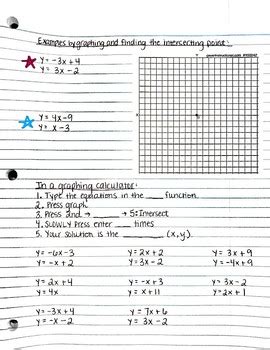 Examples by graphing and finding the intercecting point:
y = -3x + 4
y = 3x - 2
y = 4x - 9
y = x - 3
In a graphing calculator:
1. Type the equations in the ___ function.
2. Press graph.
3. Press 2nd → ___ → 5: Intersect
4. SLOWLY Press enter ___ times
5. Your solution is the ___ (x, y).
y = -6x - 3 y = 2x + 2 y = 3x + 9
y = -x + 2 y = 3x - 2 y = -4x + 9
y = 2x + 4 y = -x + 3 y = 3x - 2
y = 4x y = x + 11 y = 2x + 1
y = -3x + 4 y = 7x + 6
y = -x - 2 y = 3x - 2